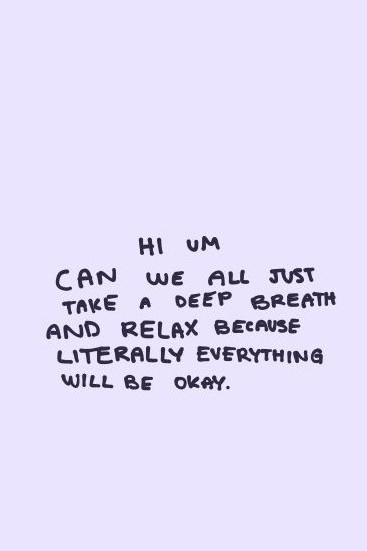 HI UM
CAN WE ALL JUST
TAKE A DEEP BREATH
AND RELAX BECAUSE
LITERALLY EVERYTHING
WILL BE OKAY.